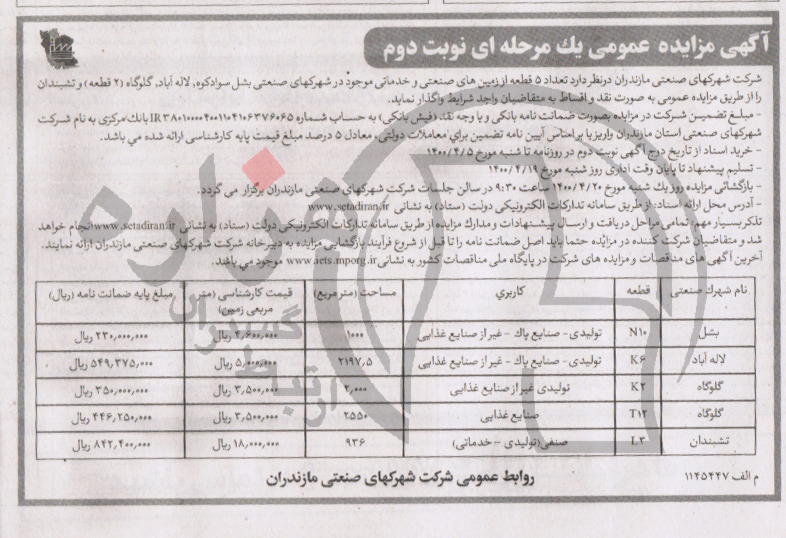 آگهی مزایده عمومی یك مرحله ای نوبت دوم
شرکت شهرکهای صنعتی مازندران درنظر دارد تعداد ۵ قطعه از زمین های صنعتی و خدماتی موجود در شهرکهای صنعتی بشل سوادکوه، لاله آباد، گلوگاه (۲ قطعه) و تشبندان
را از طریق مزایده عمومی به صورت نقد و اقساط به متقاضیان واجد شرایط واگذار نماید.
- مبلغ تضمین شرکت در مزایده بصورت ضمانت نامه بانکی و یا وجه نقد (فیش بانکی) به حساب شماره IR۳۸۰۱۰۰۰۰۴۰۰۱۱۰۴۱۰۶۳۷۶۰۶۵ بانك مرکزی به نام شرکت
شهرکهای صنعتی استان مازندران واریز یا براساس آیین نامه تضمین برای معاملات دولتی، معادل ۵ درصد مبلغ قیمت پایه کارشناسی ارائه شده می باشد.
- خرید اسناد از تاریخ درج آگهی نوبت دوم در روزنامه تا شنبه مورخ ۱۴۰۰/۴/۵
- تسلیم پیشنهاد تا پایان وقت اداری روز شنبه مورخ ۱۴۰۰/۴/۱۹
- بازگشائی مزایده روز یك شنبه مورخ ۱۴۰۰/۴/۲۰ ساعت ۹:۳۰ در سالن جلسات شرکت شهرکهای صنعتی مازندران برگزار می گردد.
- آدرس محل ارائه اسناد: از طریق سامانه تدارکات الکترونیکی دولت (ستاد) به نشانی www.setadiran.ir
تذکر بسیار مهم: تمامی مراحل دریافت و ارسال پیشنهادات و مدارك مزایده از طریق سامانه تدارکات الکترونیکی دولت (ستاد) به نشانی www.setadiran.ir انجام خواهد
شد و متقاضیان شرکت کننده در مزایده حتما باید اصل ضمانت نامه را تا قبل از شروع فرآیند بازگشایی مزایده به دبیرخانه شرکت شهرکهای صنعتی مازندران ارائه نمایند.
آخرین آگهی های مناقصات و مزایده های شرکت در پایگاه ملی مناقصات کشور به نشانی www.iets.mporg.ir موجود می باشند.
نام شهرك صنعتی قطعه کاربری مساحت (متر مربع) قیمت کارشناسی (متر مربعی زمین) مبلغ پایه ضمانت نامه (ریال)
بشل N۱۰ تولیدی- صنایع پاك - غیر از صنایع غذایی ۱۰۰۰ ۴,۶۰۰,۰۰۰ ریال ۲۳۰,۰۰۰,۰۰۰ ریال
لاله آباد K۶ تولیدی- صنایع پاك - غیر از صنایع غذایی ۲۱۹۷٫۵ ۵,۰۰۰,۰۰۰ ریال ۵۴۹,۳۷۵,۰۰۰ ریال
گلوگاه K۲ تولیدی غیر از صنایع غذایی ۲,۰۰۰ ۳,۵۰۰,۰۰۰ ریال ۳۵۰,۰۰۰,۰۰۰ ریال
گلوگاه T۱۲ صنایع غذایی ۲۵۵۰ ۳,۵۰۰,۰۰۰ ریال ۴۴۶,۲۵۰,۰۰۰ ریال
تشبندان L۳ صنفی (تولیدی - خدماتی) ۹۳۶ ۱۸,۰۰۰,۰۰۰ ریال ۸۴۲,۴۰۰,۰۰۰ ریال
م الف ۱۱۴۵۴۴۷
روابط عمومی شرکت شهرکهای صنعتی مازندران